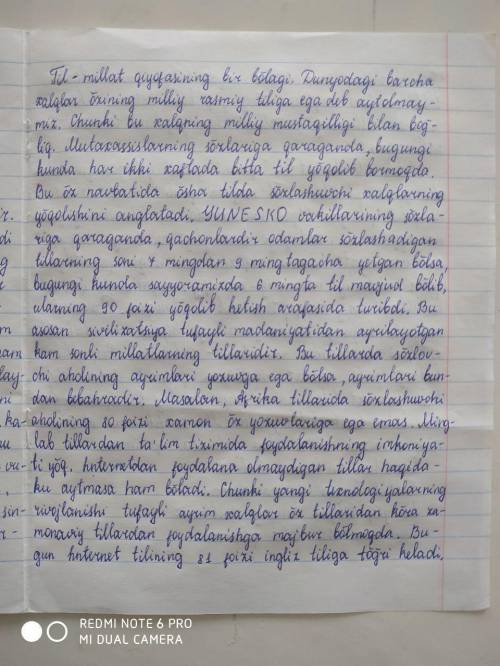 Til - millat qiyofasining bir bo'lagi. Dunyodagi barcha
xalqlar o'zining milliy rasmiy tiliga ega deb aytolmay-
miz. Chunki bu xalqning milliy mustaqilligi bilan bog'-
liq. Mutaxassislarning so'zlariga qaraganda, bugungi
kunda har ikki xaftada bitta til yo'qolib bormoqda.
Bu o'z navbatida o'sha tilda so'zlashuvchi xalqlarning
yo'qolishini anglatadi. YUNESKO vakillarining so'zla-
riga qaraganda, qachonlardir odamlar so'zlashadigan
tillarning soni 7 mingdan 9 mingtagacha yetgan bo'lsa,
bugungi kunda sayyoramizda 6 mingta til mavjud bo'lib,
ularning 90 foizi yo'qolib ketish arafasida turibdi. Bu
asosan sivilizatsiya tufayli madaniyatidan ayrilayotgan
kam sonli millatlarning tillaridir. Bu tillarda so'zlov-
chi aholining ayrimlari yozuvga ega bo'lsa, ayrimlari bun-
dan bebahradir. Masalan, Afrika tillarida so'zlashuvchi
aholining 80 foizi xamon o'z yozuvlariga ega emas. Ming-
lab tillardan ta'lim tizimida foydalanishning imkoniya-
ti yo'q. Internetdan foydalana olmaydigan tillar haqida-
ku aytmasa ham bo'ladi. Chunki yangi texnologiyalarning
rivojlanishi tufayli ayrim xalqlar o'z tillaridan ko'ra za-
monaviy tillardan foydalanishga majbur bo'lmoqda. Bu-
gun Internet tilining 81 foizi ingliz tiliga to'g'ri keladi.
REDMI NOTE 6 PRO
MI DUAL CAMERA